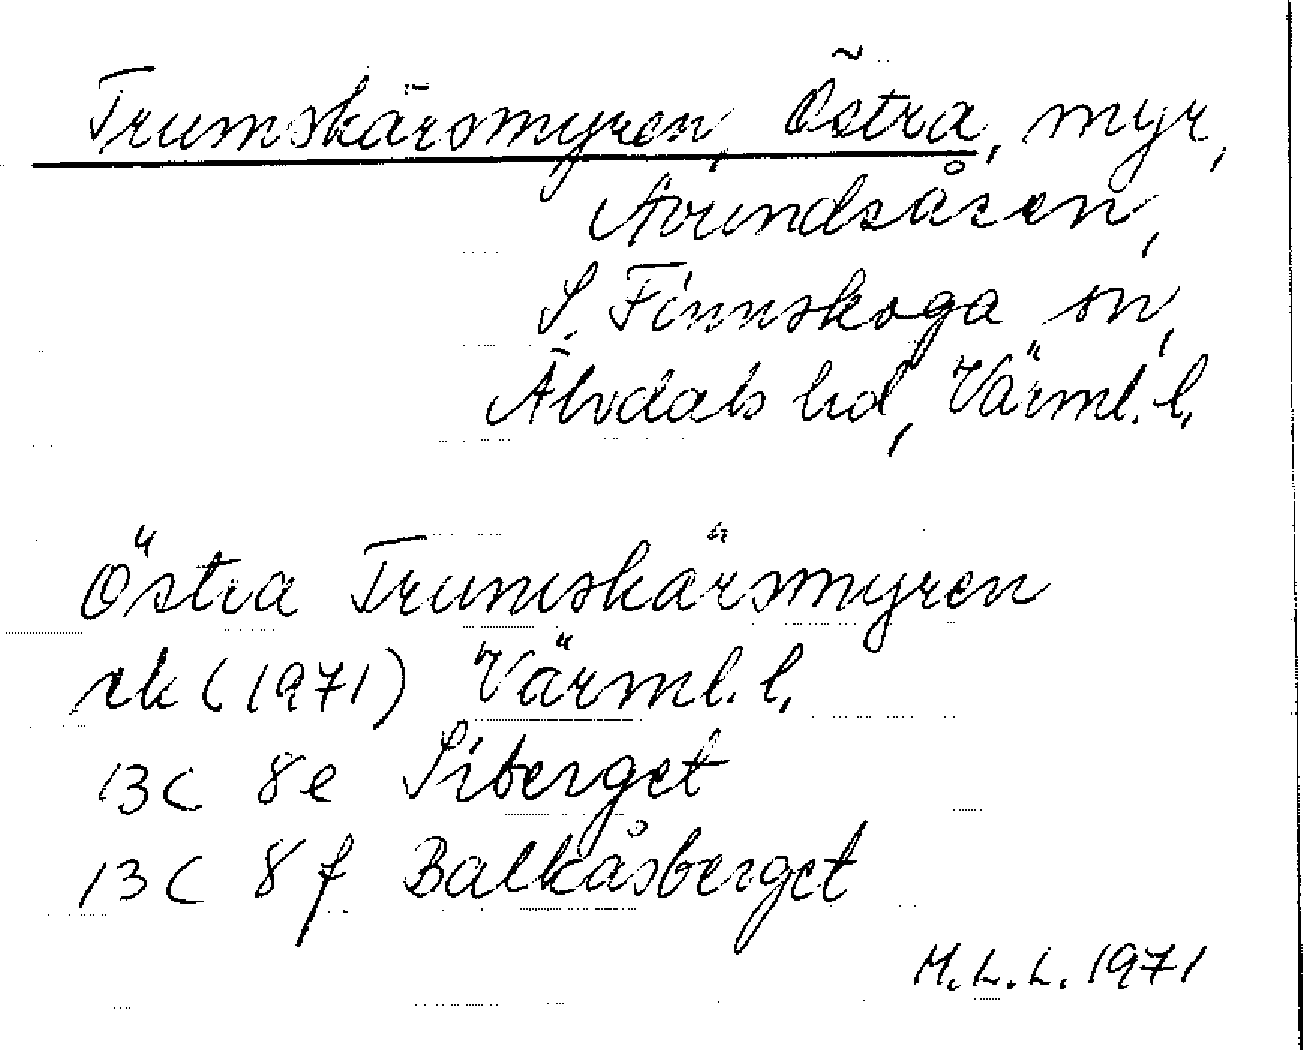 Trumskärsmyren, Östra, myr,
Avundsåsen,
S. Finnskoga sn,
Älvdals hd, Värml. l.
Östra Trumskärsmyren
ek (1971) Värml. l.
13C 8e Siberget
13C 8f Balkåsberget
M.L.L. 1971